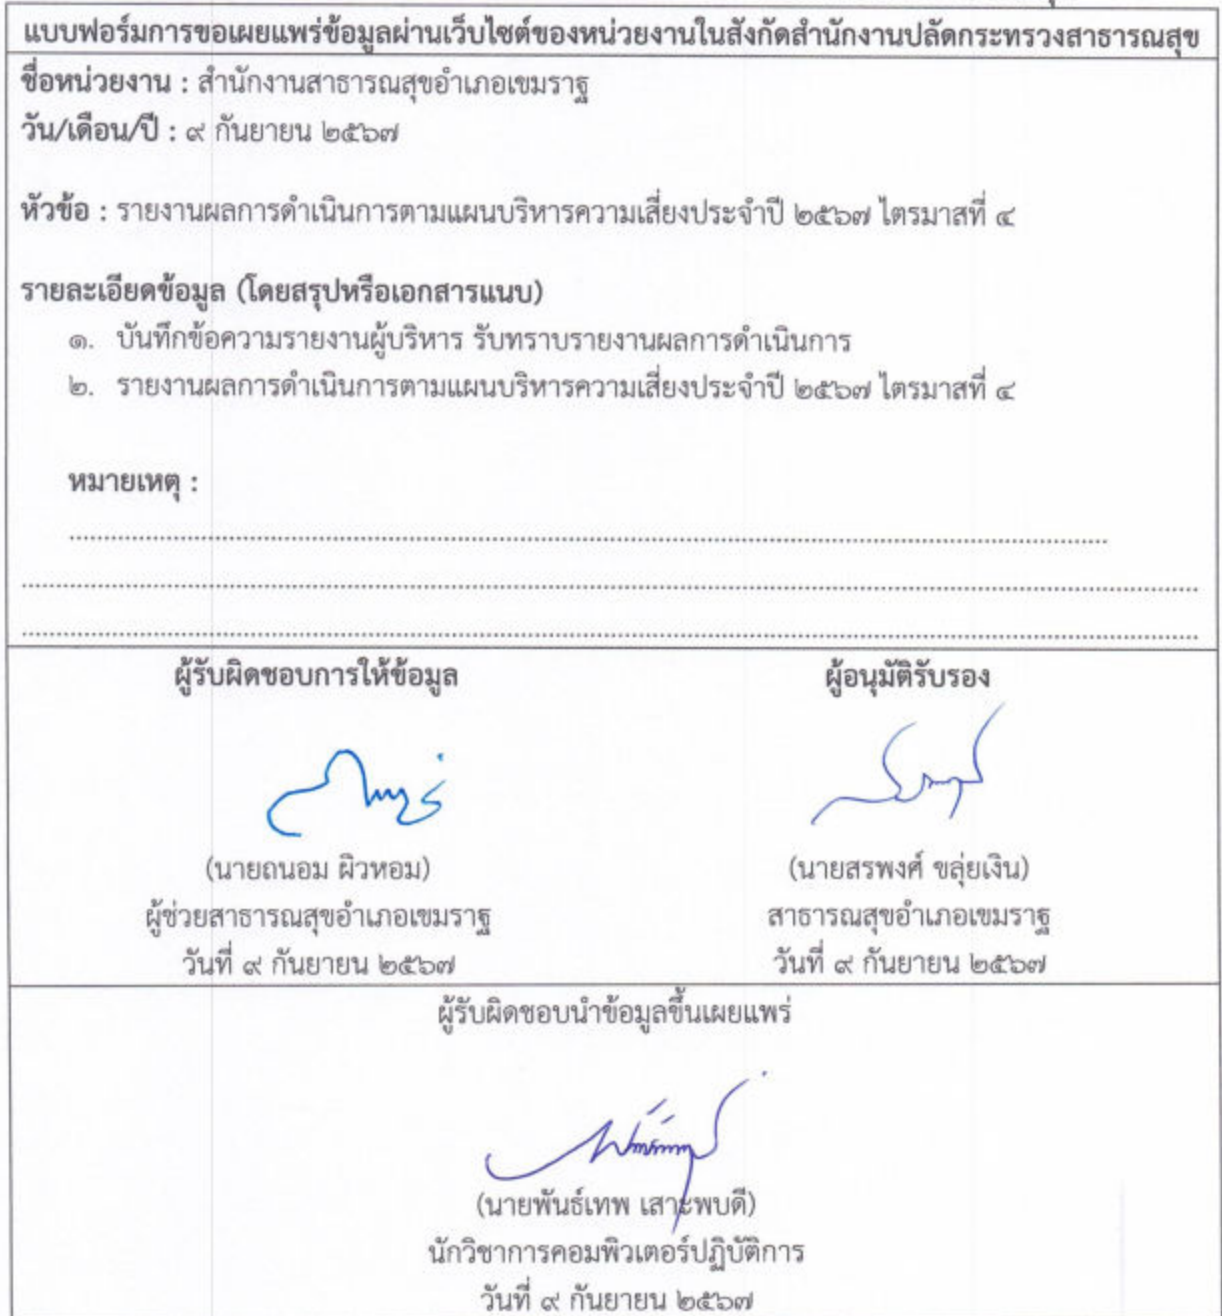 แบบฟอร์มการขอเผยแพร่ข้อมูลผ่านเว็บไซต์ของหน่วยงานในสังกัดสำนักงานปลัดกระทรวงสาธารณสุข
ชื่อหน่วยงาน : สำนักงานสาธารณสุขอำเภอเขมราฐ
วัน/เดือน/ปี : ๙ กันยายน ๒๕๖๗
หัวข้อ : รายงานผลการดำเนินการตามแผนบริหารความเสี่ยงประจำปี ๒๕๖๗ ไตรมาสที่ ๔
รายละเอียดข้อมูล (โดยสรุปหรือเอกสารแนบ)
๑. บันทึกข้อความรายงานผู้บริหาร รับทราบรายงานผลการดำเนินการ
๒. รายงานผลการดำเนินการตามแผนบริหารความเสี่ยงประจำปี ๒๕๖๗ ไตรมาสที่ ๔
หมายเหตุ :
ผู้รับผิดชอบการให้ข้อมูล
(นายถนอม ผิวหอม)
ผู้ช่วยสาธารณสุขอำเภอเขมราฐ
วันที่ ๙ กันยายน ๒๕๖๗
ผู้อนุมัติรับรอง
(นายสรพงศ์ ขลุ่ยเงิน)
สาธารณสุขอำเภอเขมราฐ
วันที่ ๙ กันยายน ๒๕๖๗
ผู้รับผิดชอบนำข้อมูลขึ้นเผยแพร่
(นายพันธ์เทพ เสาะพบดี)
นักวิชาการคอมพิวเตอร์ปฏิบัติการ
วันที่ ๙ กันยายน ๒๕๖๗